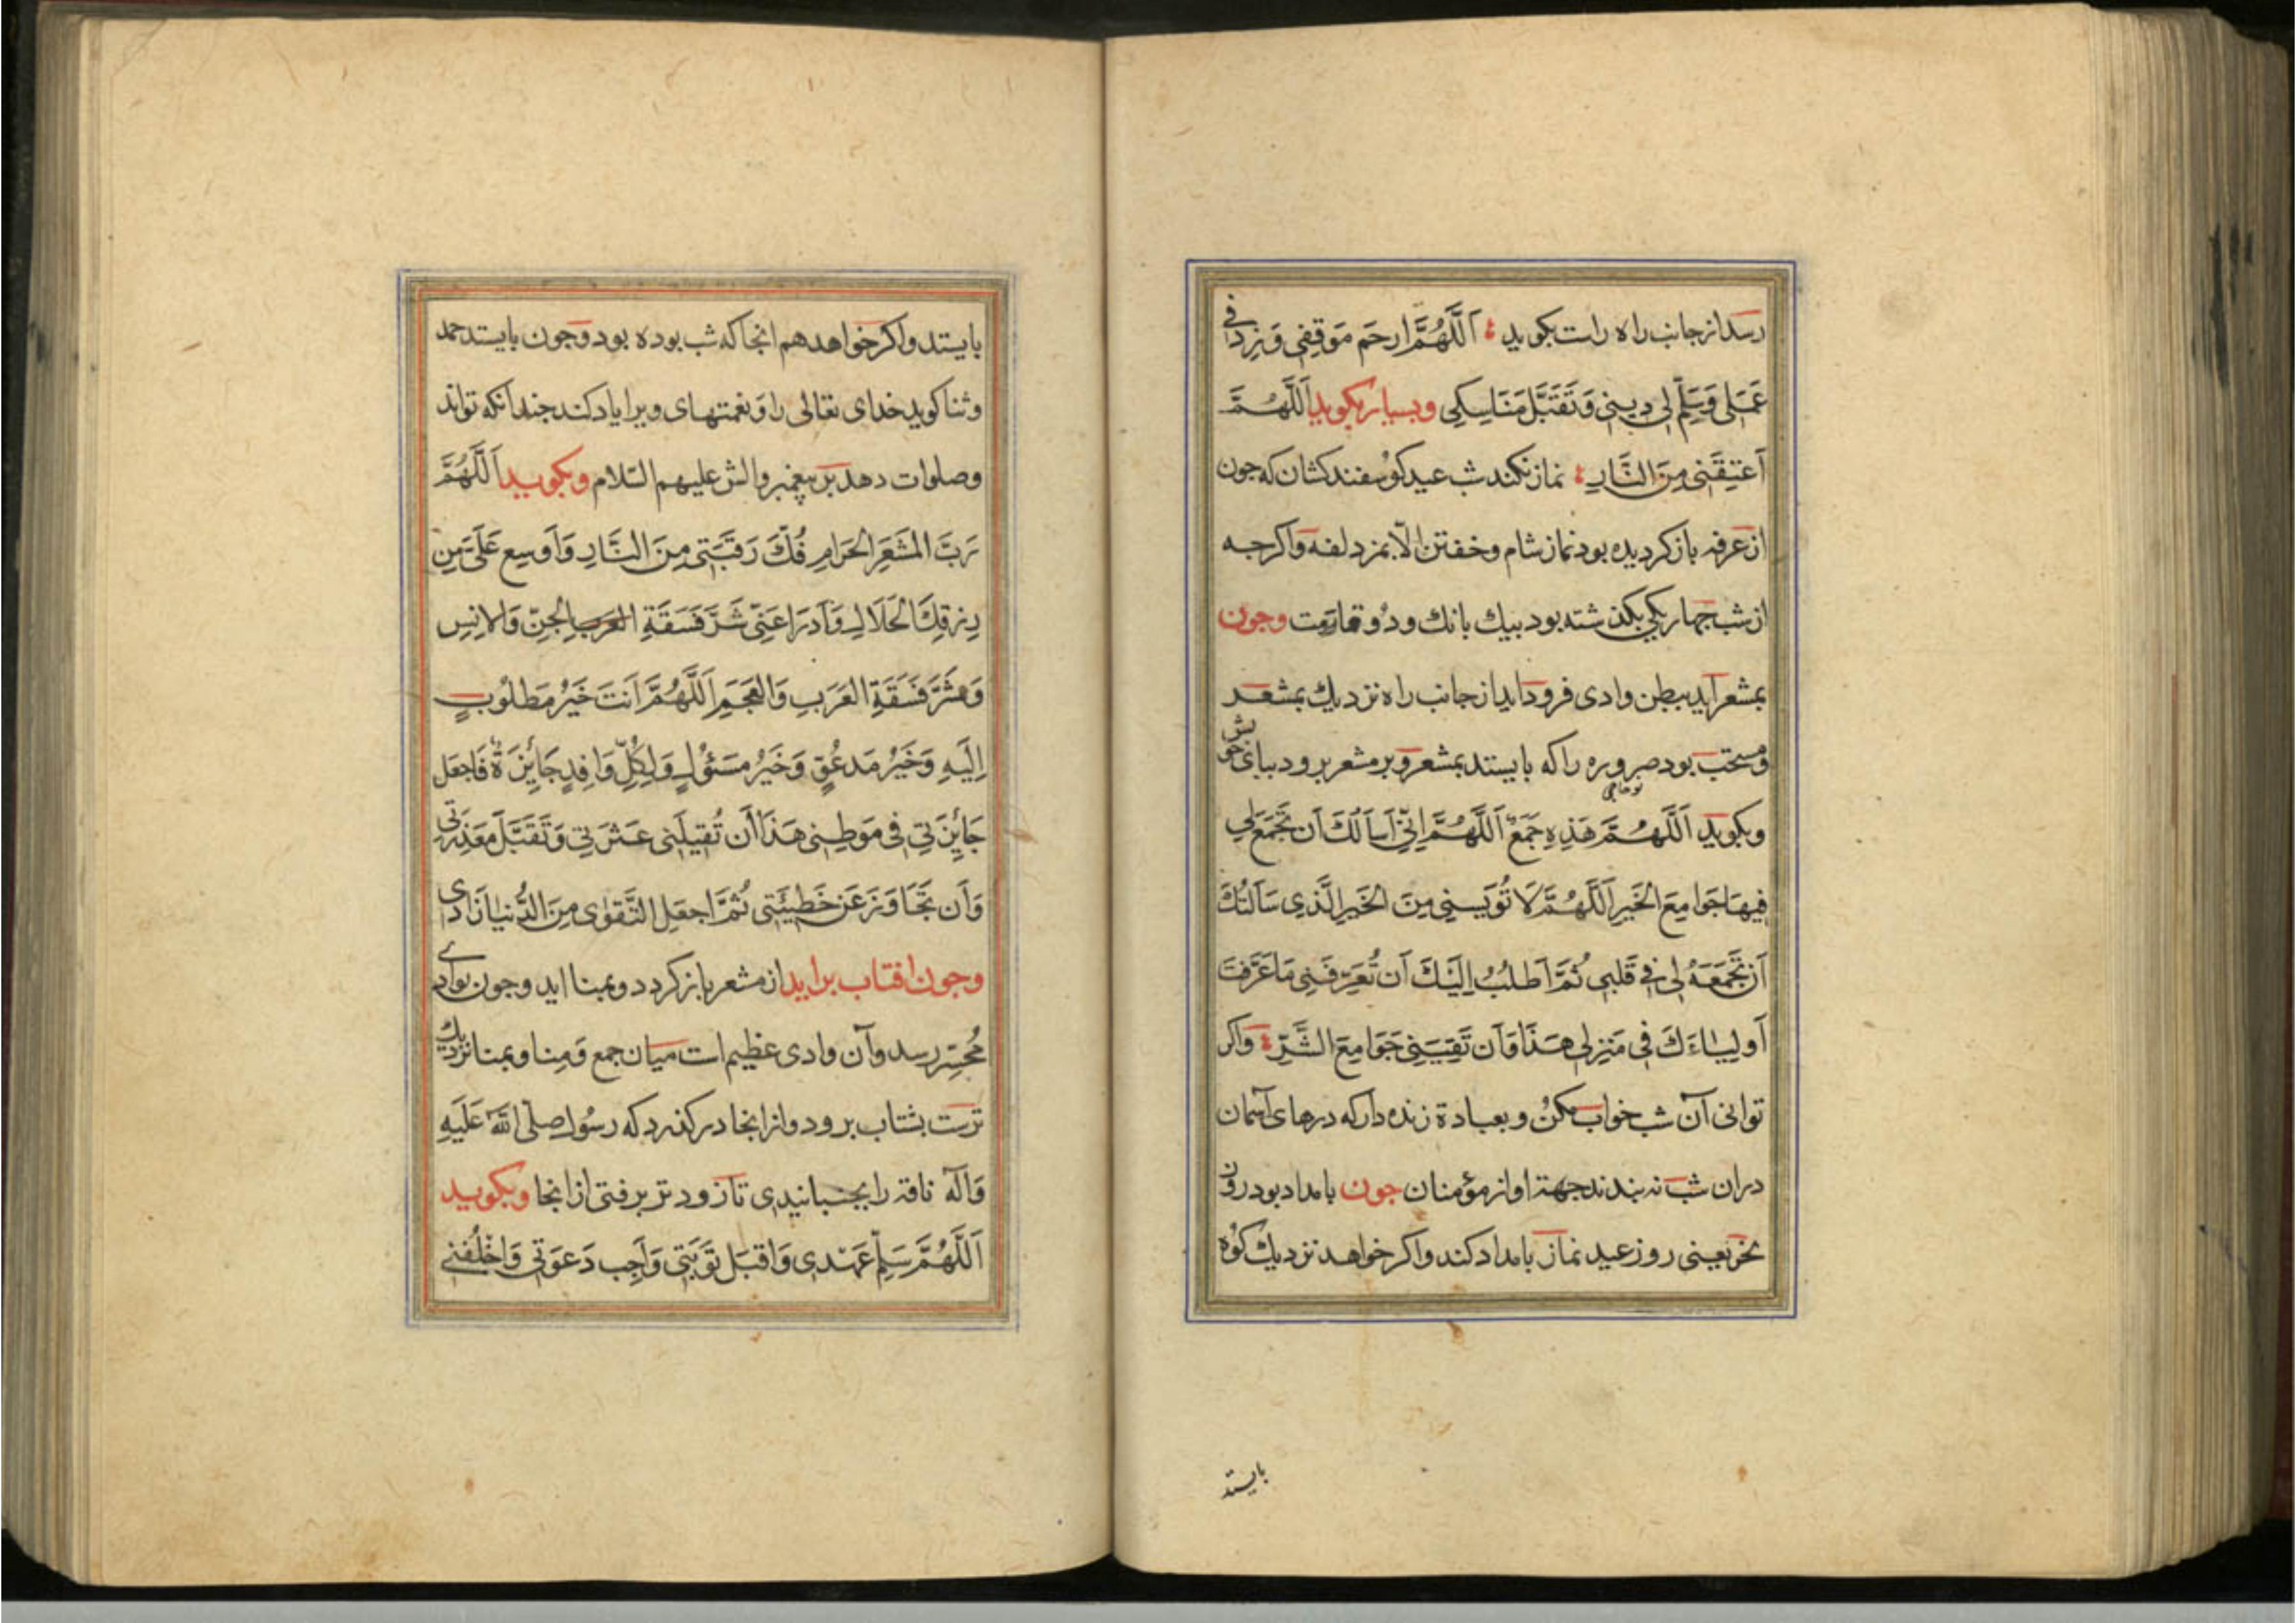 رسد از جانب راه راست بکوید اَللَّهُمَّ ارحَم مَوقِفِی وَزِد فِی
عَمَلِی وَسَلِّم لِی دِینِی وَتَقَبَّل مَنَاسِکِی وبسیار بکوید اَللَّهُمَّ
اَعتِقنِی مِنَ النَّارِ نماز نکند شب عید کوسفند کشان که جون
از عرفه باز کردیده بود نماز شام وخفتن الّا بمزدلفه واکرجه
از شب جهار یکی بکذشته بود بیك بانك ودو قامت وجون
بمشعر آید ببطن وادی فرود آید از جانب راه نزدیك بمشعر
ومستحب بود صروره را که بایستد بمشعر وبر مشعر برود بپای خویش
وبکوید اَللَّهُمَّ هَذِهِ جَمعٌ اَللَّهُمَّ اِنِّی اَساَلُكَ اَن تَجمَعَ لِی
فِیهَا جَوَامِعَ الخَیرِ اَللَّهُمَّ لَا تُویسنِی مِنَ الخَیرِ الَّذِی سَاَلتُكَ
اَن تَجمَعَهُ لِی فِی قَلبِی ثُمَّ اَطلُبُ اِلَیكَ اَن تُعَرِّفَنِی مَا عَرَّفتَ
اَولِیَاءَكَ فِی مَنزِلِی هَذَا وَاَن تَقِیَنِی جَوَامِعَ الشَّرِّ واکر
توانی آن شب خواب مکن وبعبادة زنده دار که درهای آسمان
دران شب نه بندند جهة اواز مؤمنان جون بامداد بود روز
نحر یعنی روز عید نماز بامداد کند واکر خواهد نزدیك کوه
بایستد
بایستد واکر خواهد هم انجا که شب بوده بود وجون بایستد حمد
وثنا کوید خدای تعالی را ونعمتهای ویرا یاد کند جندانکه تواند
وصلوات دهد بر پیغمبر والش علیهم السّلام وبکوید اَللَّهُمَّ
رَبَّ المَشعَرِ الحَرَامِ فُكَّ رَقَبَتِی مِنَ النَّارِ وَاَوسِع عَلَیَّ مِن
رِزقِكَ الحَلَالِ وَادرَا عَنِّی شَرَّ فَسَقَةِ العَرَبِ الجِنِّ وَالاِنسِ
وَشَرَّ فَسَقَةِ العَرَبِ وَالعَجَمِ اَللَّهُمَّ اَنتَ خَیرُ مَطلُوبٍ
اِلَیهِ وَخَیرُ مَدعُوٍّ وَخَیرُ مَسئُولٍ وَلِکُلِّ وَافِدٍ جَائِزَةٌ فَاجعَل
جَائِزَتِی فِی مَوطِنِی هَذَا اَن تُقِیلَنِی عَثرَتِی وَتَقبَّلَ مَعذِرَتِی
وَاَن تَجَاوَزَ عَن خَطِیئَتِی ثُمَّ اجعَلِ التَّقوٰی مِنَ الدُّنیَا زَادِی
وجون افتاب برآید از مشعر باز کردد وبمنا اید وجون بوادی
مُحَسِّر رسد وآن وادی عظیم است میان جمع ومنا وبمنا نزدیك
ترست بشتاب برود واز انجا درکذرد که رسُول صلّی اللّه عَلَیهِ
وَآلِه ناقه را بجنبانیدی تا زودتر برفتی از انجا وبکوید
اَللَّهُمَّ سَلِّم عَهدِی وَاقبَل تَوبَتِی وَاَجِب دَعوَتِی وَاخلُفنِی